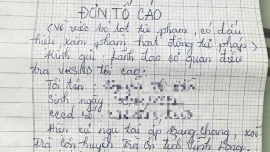 ĐƠN TỐ CÁO
(Về việc bỏ lọt tội phạm, có dấu
hiệu xâm phạm hoạt động tư pháp)
Kính gửi: Lãnh đạo cơ quan điều
tra VKSND tối cao.
Tôi tên
Sinh ngày
CCCD số
Hiện cư ngụ tại ấp Bàng Chang, xã
Trà Côn, huyện Trà Ôn, tỉnh Vĩnh Long.